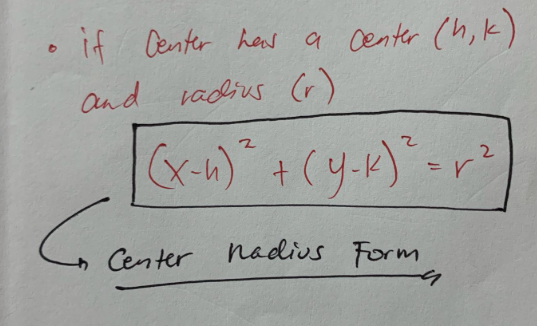 • if Center has a center (h, k)
and radius (r)
(x-h)² + (y-k)² = r²
Center Radius Form